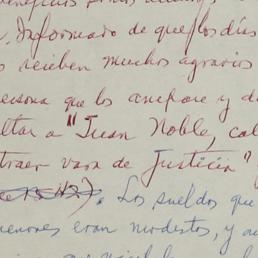 . Informado de que los días
reciben muchos agravios
ersona que los ampare y d
ltar a "Juan Noble, cal
traer vara de Justicia"
. Los sueldos que
menores eran modestos, y a